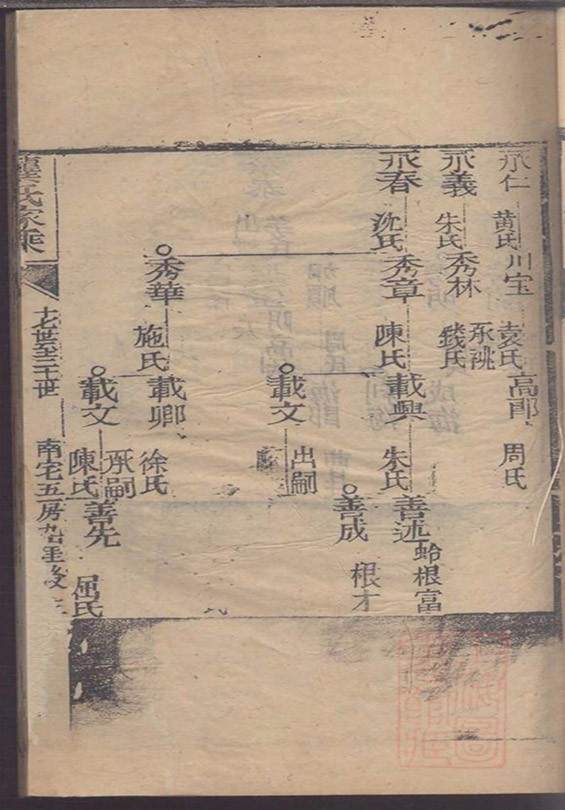 承仁 黄氏 川宝 袁氏 高郎 周氏
承義 朱氏 秀林 承祧 錢氏
承春 沈氏 秀章 陳氏 載興 朱氏 善述 蛤根富
善成 根才
載文 出嗣
秀華 施氏 載卿 徐氏
載文 承嗣 陳氏 善先 屈氏
氏家乘
十七世至二十世
南宅五房